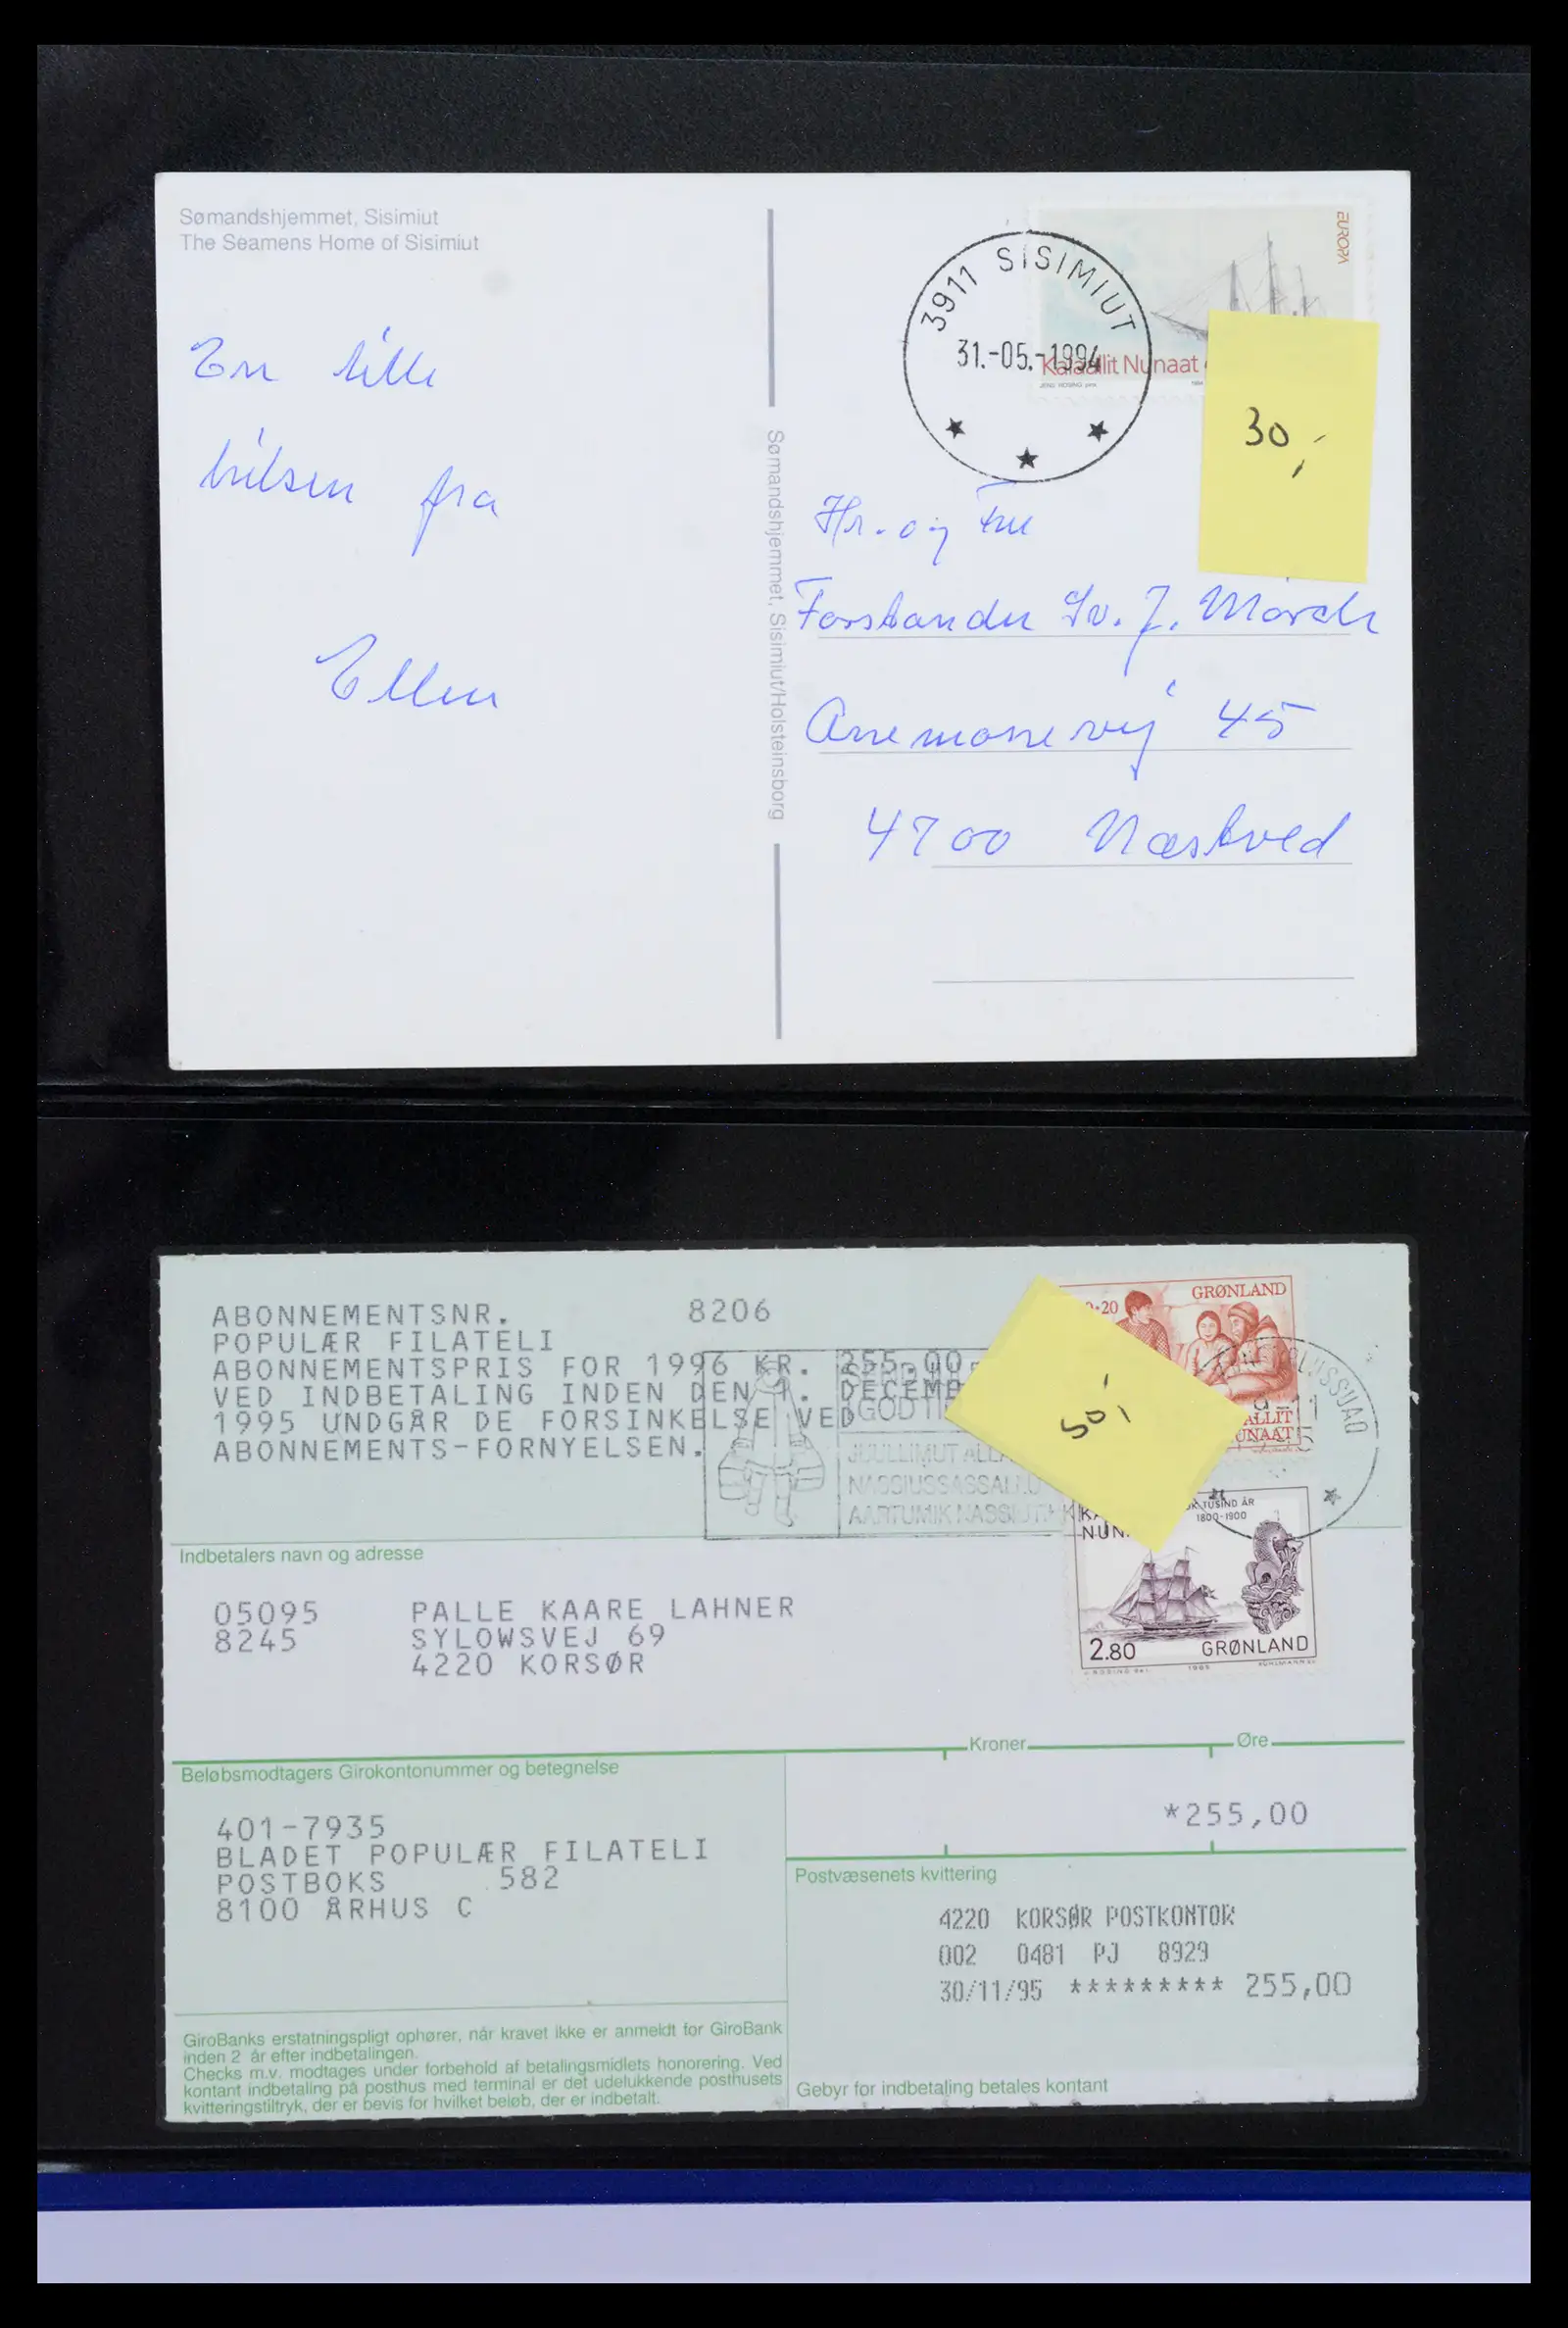 Sømandshjemmet, Sisimiut
The Seamens Home of Sisimiut
EUROPA
3911 SISIMIUT
31.-05.-1994
Kalaallit Nunaat
JENS ROSING pinx.
1994
30,-
En lille
hilsen fra
Ellen
Sømandshjemmet, Sisimiut/Holsteinsborg
Hr. og Fru
Forstander Sv. J. Mørch
Anemonevej 45
4700 Næstved
ABONNEMENTSNR. 8206
POPULÆR FILATELI
ABONNEMENTSPRIS FOR 1996 KR. 255.00
VED INDBETALING INDEN DEN 1. DECEMB
1995 UNDGÅR DE FORSINKELSE VED
ABONNEMENTS-FORNYELSEN.
GOD TI
JUULLIMUT ALLA
NASSIUSSASSALLU
AARTUMIK NASSIUTI
50,-
GRØNLAND
ALLIT
UNAAT
TUSIND ÅR
1800-1900
KA
NUN
2.80 GRØNLAND
Indbetalers navn og adresse
05095 PALLE KAARE LAHNER
8245 SYLOWSVEJ 69
4220 KORSØR
Kroner Øre
Beløbsmodtagers Girokontonummer og betegnelse
*255,00
401-7935
BLADET POPULÆR FILATELI
POSTBOKS 582
8100 ÅRHUS C
Postvæsenets kvittering
4220 KORSØR POSTKONTOR
002 0481 PJ 8929
30/11/95 ********* 255,00
GiroBanks erstatningspligt ophører, når kravet ikke er anmeldt for GiroBank
inden 2 år efter indbetalingen.
Checks m.v. modtages under forbehold af betalingsmidlets honorering. Ved
kontant indbetaling på posthus med terminal er det udelukkende posthusets
kvitteringstiltryk, der er bevis for hvilket beløb, der er indbetalt.
Gebyr for indbetaling betales kontant